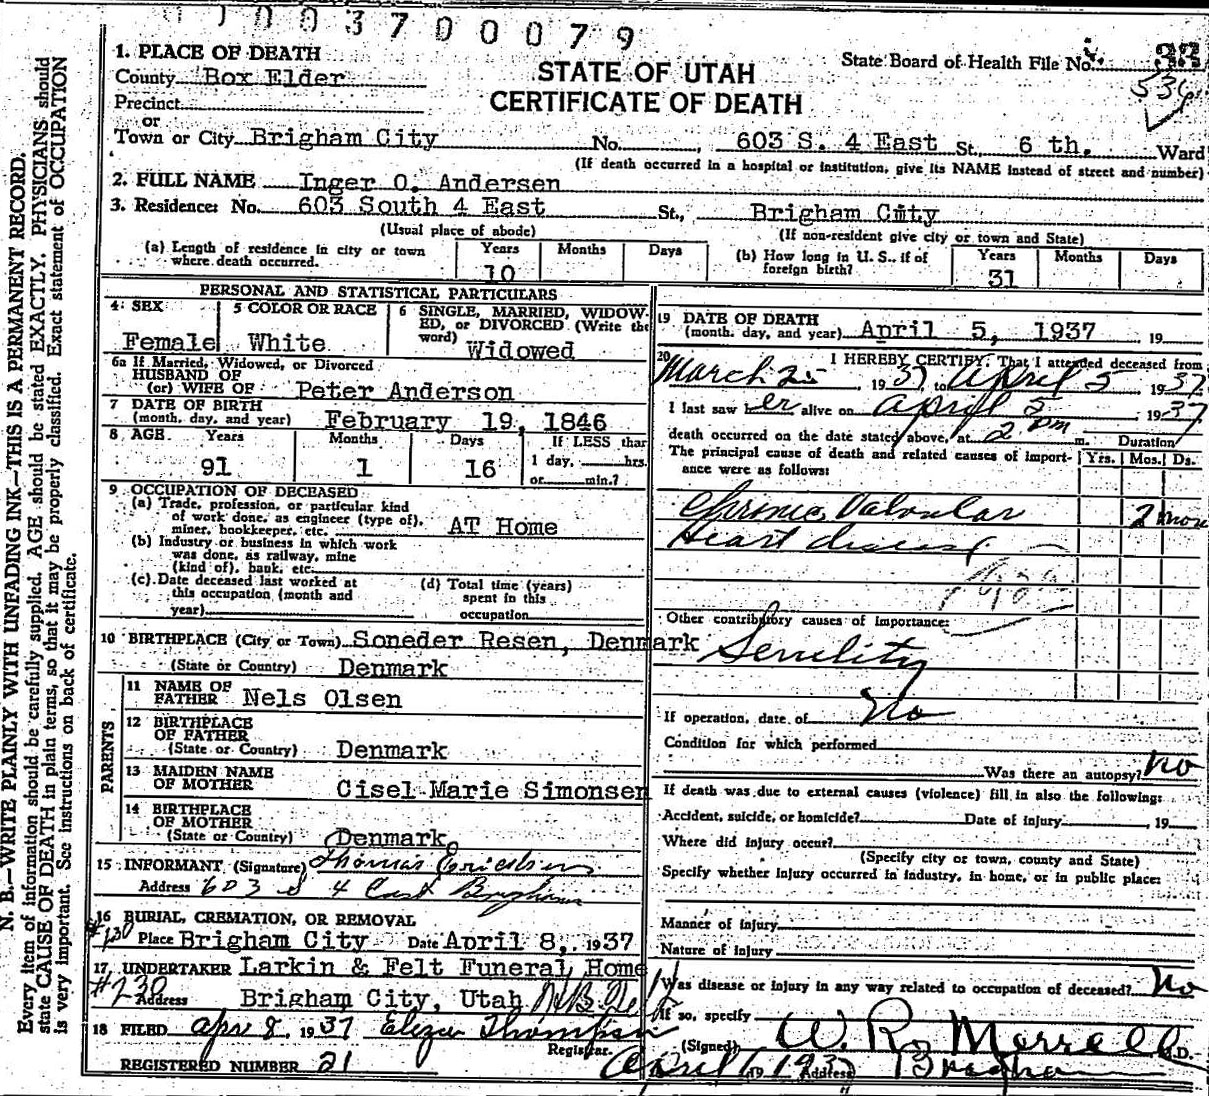 1003700079
1. PLACE OF DEATH
County Box Elder
STATE OF UTAH
CERTIFICATE OF DEATH
State Board of Health File No.
536
Precinct
or
Town or City Brigham City No. , 603 S. 4 East St., 6 th. Ward
(If death occurred in a hospital or institution, give its NAME instead of street and number)
2. FULL NAME Inger O. Andersen
3. Residence: No. 603 South 4 East St., Brigham City
(Usual place of abode) (If non-resident give city or town and State)
(a) Length of residence in city or town where death occurred. Years 10 Months Days
(b) How long in U. S., if of foreign birth? Years 31 Months Days
PERSONAL AND STATISTICAL PARTICULARS
4. SEX Female
5 COLOR OR RACE White
6 SINGLE, MARRIED, WIDOWED, or DIVORCED (Write the word) Widowed
6a If Married, Widowed, or Divorced
HUSBAND OF
(or) WIFE OF Peter Anderson
7 DATE OF BIRTH
(month, day, and year) February 19, 1846
8 AGE Years 91 Months 1 Days 16 If LESS than 1 day, hrs. or min.?
9 OCCUPATION OF DECEASED
(a) Trade, profession, or particular kind
of work done, as engineer (type of),
miner, bookkeeper, etc. AT Home
(b) Industry or business in which work
was done, as railway, mine
(kind of), bank, etc.
(c) Date deceased last worked at
this occupation (month and
year)
(d) Total time (years)
spent in this
occupation
10 BIRTHPLACE (City or Town) Soneder Resen, Denmark
(State or Country) Denmark
PARENTS
11 NAME OF
FATHER Nels Olsen
12 BIRTHPLACE
OF FATHER
(State or Country) Denmark
13 MAIDEN NAME
OF MOTHER Cisel Marie Simonsen
14 BIRTHPLACE
OF MOTHER
(State or Country) Denmark
15 INFORMANT (Signature) Thomas Erickson
Address 603 S 4 East Brigham
16 BURIAL, CREMATION, OR REMOVAL
#130 Place Brigham City Date April 8, 1937
17 UNDERTAKER Larkin & Felt Funeral Home
#230 Address Brigham City, Utah
18 FILED Apr 8 1937 Eliza Thompson
Registrar.
REGISTERED NUMBER 21
19 DATE OF DEATH
(month, day, and year) April 5, 1937 , 19
20 I HEREBY CERTIFY: That I attended deceased from
March 25, 1937 to April 5 1937
I last saw er alive on April 5, 1937
death occurred on the date stated above, at 2 pm m. Duration
The principal cause of death and related causes of importance were as follows: Yrs. Mos. Ds.
Chronic Valvular 2 mos
Heart disease
Other contributory causes of importance:
Senility
If operation, date of No
Condition for which performed
Was there an autopsy? no
If death was due to external causes (violence) fill in also the following:
Accident, suicide, or homicide? Date of injury , 19
Where did injury occur?
(Specify city or town, county and State)
Specify whether injury occurred in industry, in home, or in public place:
Manner of injury
Nature of injury
Was disease or injury in any way related to occupation of deceased? No
If so, specify
(Signed) W. R. Merrell M.D.
April 19 1937 Address Brigham
N. B.—WRITE PLAINLY WITH UNFADING INK—THIS IS A PERMANENT RECORD.
Every item of information should be carefully supplied. AGE should be stated EXACTLY. PHYSICIANS should
state CAUSE OF DEATH in plain terms, so that it may be properly classified. Exact statement of OCCUPATION
is very important. See instructions on back of certificate.